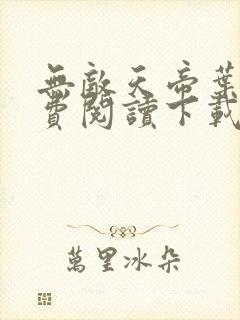 無敵天帝葉
費閱讀下載
萬里冰朵